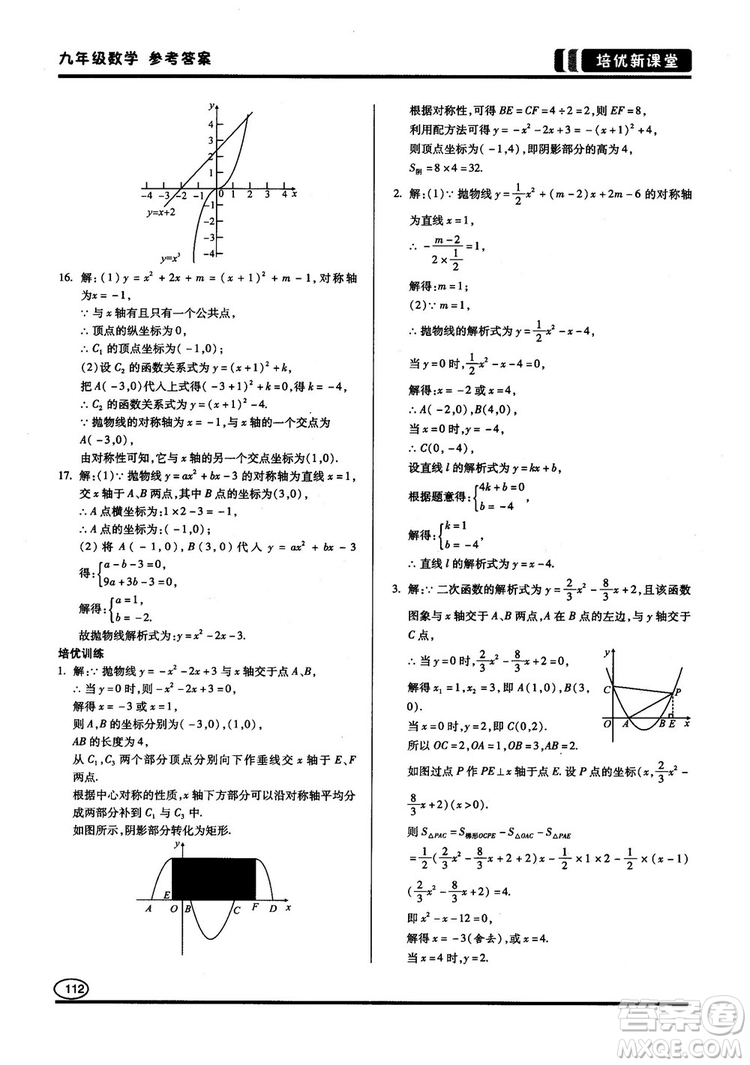 九年级数学 参考答案
培优新课堂
y
4
3
2
1
-4 -3 -2 -1 0 1 2 3 4 x
-1
-2
-3
-4
y=x+2
y=x³
16. 解:(1)y = x² + 2x + m = (x+1)² + m - 1,对称轴
为x = -1,
∵ 与 x 轴有且只有一个公共点,
∴ 顶点的纵坐标为0,
∴ C₁ 的顶点坐标为( -1,0);
(2)设 C₂ 的函数关系式为 y = (x+1)² + k,
把 A( -3,0)代入上式得( -3+1)² + k = 0,得 k = -4,
∴ C₂ 的函数关系式为 y = (x+1)² -4.
∵ 抛物线的对称轴为 x = -1,与 x 轴的一个交点为
A( -3,0),
由对称性可知,它与 x 轴的另一个交点坐标为(1,0).
17. 解:(1)∵ 抛物线 y = ax² + bx - 3 的对称轴为直线 x = 1,
交 x 轴于 A、B 两点,其中 B 点的坐标为(3,0),
∴ A 点横坐标为:1×2-3 = -1,
∴ A 点坐标为:( -1,0);
(2)将 A( -1,0),B(3,0)代入 y = ax² + bx - 3
得:{a-b-3=0, 9a+3b-3=0,
解得:{a=1, b=-2.
故抛物线解析式为:y = x² -2x-3.
培优训练
1. 解:∵ 抛物线 y = -x² -2x+3 与 x 轴交于点 A、B,
∴ 当 y = 0 时,则 -x² -2x+3=0,
解得 x = -3 或 x = 1,
则 A,B 的坐标分别为( -3,0),(1,0),
AB 的长度为 4,
从 C₁,C₃ 两个部分顶点分别向下作垂线交 x 轴于 E、F
两点.
根据中心对称的性质,x 轴下方部分可以沿对称轴平均分
成两部分补到 C₁ 与 C₂.
如图所示,阴影部分转化为矩形.
y
A E O B C F D x
根据对称性,可得 BE = CF = 4÷2 = 2,则 EF = 8,
利用配方法可得 y = -x² -2x+3 = -(x+1)² +4,
则顶点坐标为( -1,4),即阴影部分的高为 4,
S阴 = 8×4 = 32.
2. 解:(1)∵ 抛物线 y = 1/2 x² + (m-2)x+2m-6 的对称轴
为直线 x = 1,
∴ - (m-2)/(2×1/2) = 1,
解得:m = 1;
(2)∵ m = 1,
∴ 抛物线的解析式为 y = 1/2 x² - x - 4,
当 y = 0 时,1/2 x² - x - 4 = 0,
解得:x = -2 或 x = 4,
∴ A( -2,0),B(4,0),
当 x = 0 时,y = -4,
∴ C(0, -4),
设直线 l 的解析式为 y = kx+b,
根据题意得:{4k+b=0, b=-4,
解得:{k=1, b=-4,
∴ 直线 l 的解析式为 y = x-4.
3. 解:∵ 二次函数的解析式为 y = 2/3 x² - 8/3 x+2,且该函数
图象与 x 轴交于 A、B 两点,A 在 B 点的左边,与 y 轴交于
C 点,
∴ 当 y = 0 时,2/3 x² - 8/3 x+2 = 0.
解得 x₁ = 1,x₂ = 3,即 A(1,0),B(3,
0).
当 x = 0 时,y = 2,即 C(0,2).
所以 OC = 2,OA = 1,
y
C P
O A B E x
如图过点 P 作 PE⊥x 轴于点 E. 设点 P 的坐标(x, 2/3 x² -
8/3 x+2)(x>0).
则 S△PAC = S梯形OCPE - S△OAC - S△PAE
= 1/2 (2/3 x² - 8/3 x+2+2)·x - 1/2 ×1×2 - 1/2 (x-1)×
(2/3 x² - 8/3 x+2) = 4,
即 x² -x-12=0,
解得 x = -3(舍去)或 x = 4.
当 x = 4 时,y = 2.
112
答案圈
MXQE.COM